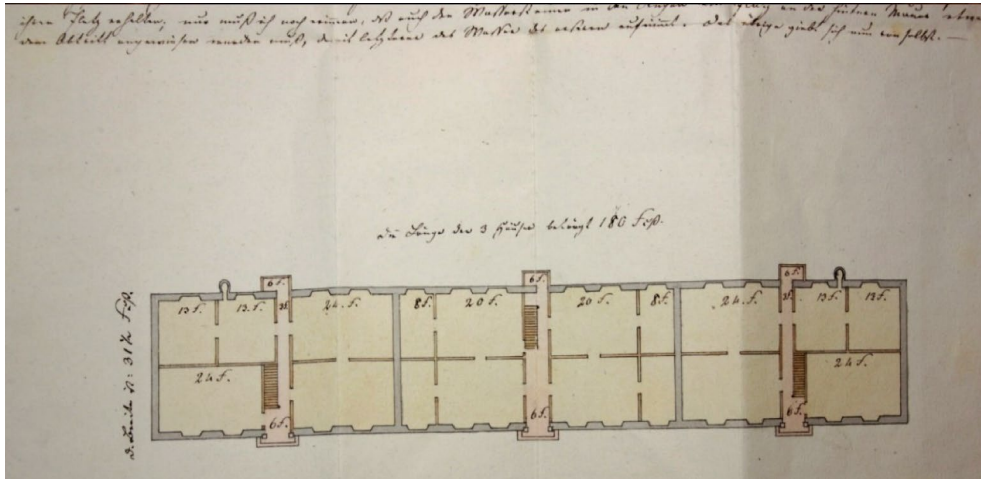 ihren Platz erhalten, nur muß ich noch erinnern, daß auch der Wasserstein in den ganz an der hintern Mauer
dem Abtritt angewiesen werden muß, damit letzterer das Wasser des ersteren aufnimmt. Das übrige giebt sich nun von selbst. —
Die Länge der 3 Häuser beträgt 180 Fuß.
6 f. 6 f. 6 f.
13 f. 13 f. 24 f. 8 f. 20 f. 20 f. 8 f. 24 f. 13 f. 13 f.
24 f. 24 f.
6 f. 6 f. 6 f.
d. Breite 31½ Fuß.